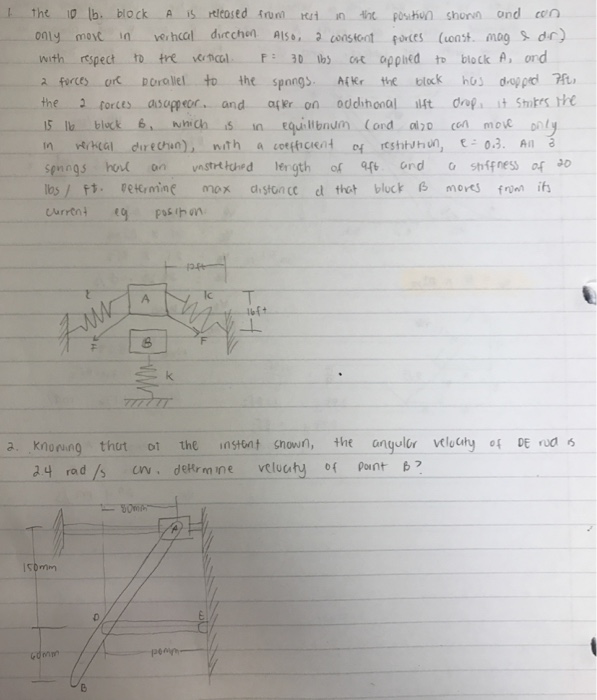 1. The 10 lb. block A is released from rest in the position shown and can
only move in vertical direction Also, 2 constant forces (const. mag & dir)
with respect to the vertical. F = 30 lbs are applied to block A, and
2 forces are parallel to the springs. After the block has dropped 7ft,
the 2 forces disappear. and after an additional 11ft drop, it strikes the
15 lb block B, which is in equilibrium (and also can move only
in vertical direction), with a coefficient of restitution, e = 0.3. All 3
springs have an unstretched length of 9ft and a stiffness of 20
lbs / ft. Determine max distance d that block B moves from its
current eq position
12ft
A
k
16ft
F
F
B
k
2. Knowing that at the instant shown, the angular velocity of DE rod is
2.4 rad/s cw. determine velocity of point B?
80mm
A
150mm
D
E
60mm
B